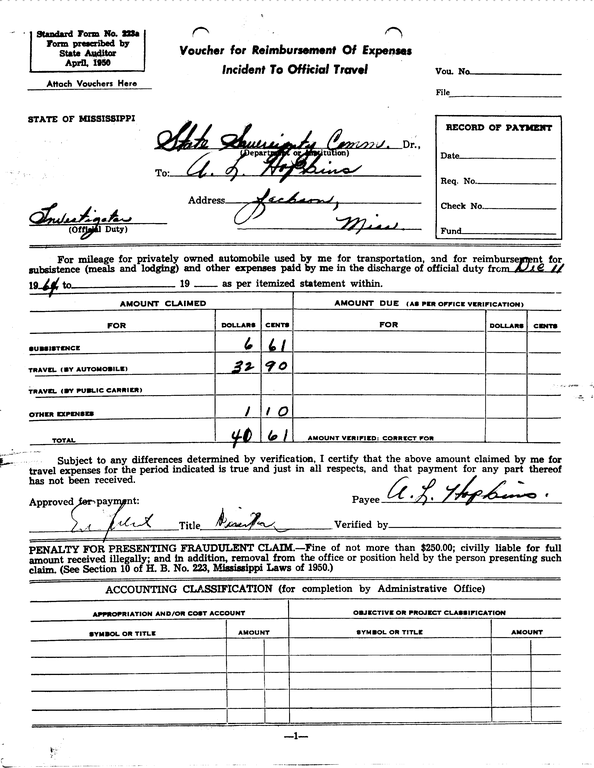 Standard Form No. 223a
Form prescribed by
State Auditor
April, 1950
Attach Vouchers Here
Voucher for Reimbursement Of Expenses
Incident To Official Travel
Vou. No.
File
STATE OF MISSISSIPPI
State Sovereignty Comm. Dr.,
(Department or Institution)
To: A. L. Hopkins
Address Jackson,
Miss.
Investigator
(Official Duty)
RECORD OF PAYMENT
Date
Req. No.
Check No.
Fund
For mileage for privately owned automobile used by me for transportation, and for reimbursement for
subsistence (meals and lodging) and other expenses paid by me in the discharge of official duty from Dec 11
1964 to 19 as per itemized statement within.
AMOUNT CLAIMED AMOUNT DUE (AS PER OFFICE VERIFICATION)
FOR DOLLARS CENTS FOR DOLLARS CENTS
SUBSISTENCE 6 61
TRAVEL (BY AUTOMOBILE) 32 90
TRAVEL (BY PUBLIC CARRIER)
OTHER EXPENSES 1 10
TOTAL 40 61 AMOUNT VERIFIED: CORRECT FOR
Subject to any differences determined by verification, I certify that the above amount claimed by me for
travel expenses for the period indicated is true and just in all respects, and that payment for any part thereof
has not been received.
Approved for payment: Payee A. L. Hopkins.
Title Director Verified by
PENALTY FOR PRESENTING FRAUDULENT CLAIM.—Fine of not more than $250.00; civilly liable for full
amount received illegally; and in addition, removal from the office or position held by the person presenting such
claim. (See Section 10 of H. B. No. 223, Mississippi Laws of 1950.)
ACCOUNTING CLASSIFICATION (for completion by Administrative Office)
APPROPRIATION AND/OR COST ACCOUNT OBJECTIVE OR PROJECT CLASSIFICATION
SYMBOL OR TITLE AMOUNT SYMBOL OR TITLE AMOUNT
—1—